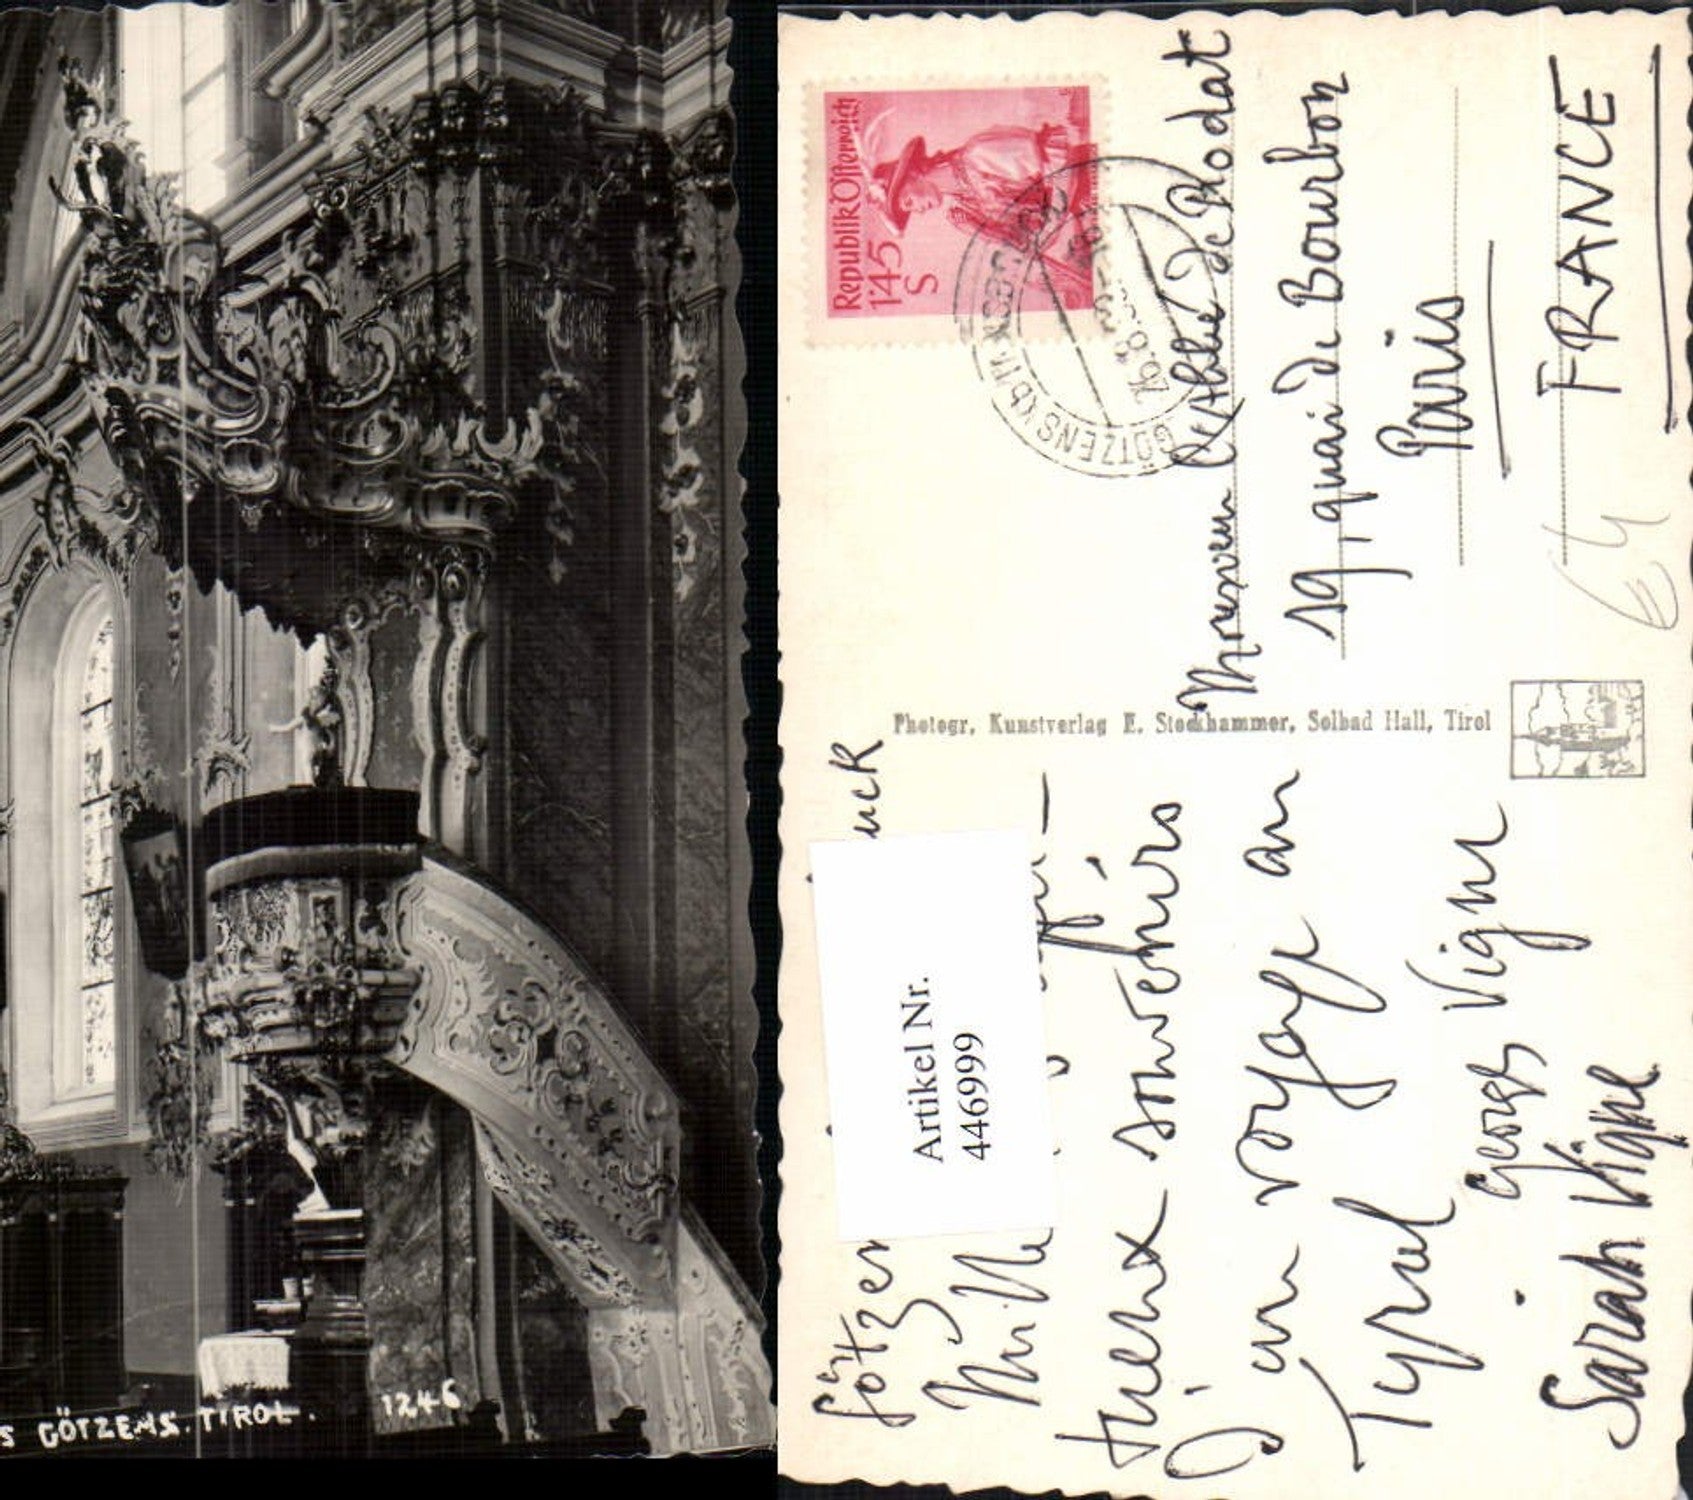 S GÖTZENS. TIROL. 1246
Republik Österreich
1'45
S
GÖTZENS üb. INNSBRUCK
26.8.
Monsieur l'Abbé de Prodat
19, quai de Bourbon
Paris
FRANCE
€4
Photogr, Kunstverlag E. Stockhammer, Solbad Hall, Tirol
Artikel Nr.
446999
Götzen uck
Mille
heureux souvenirs
d'un voyage au
Tyrol
Georges Vigne
Sarah Vigne